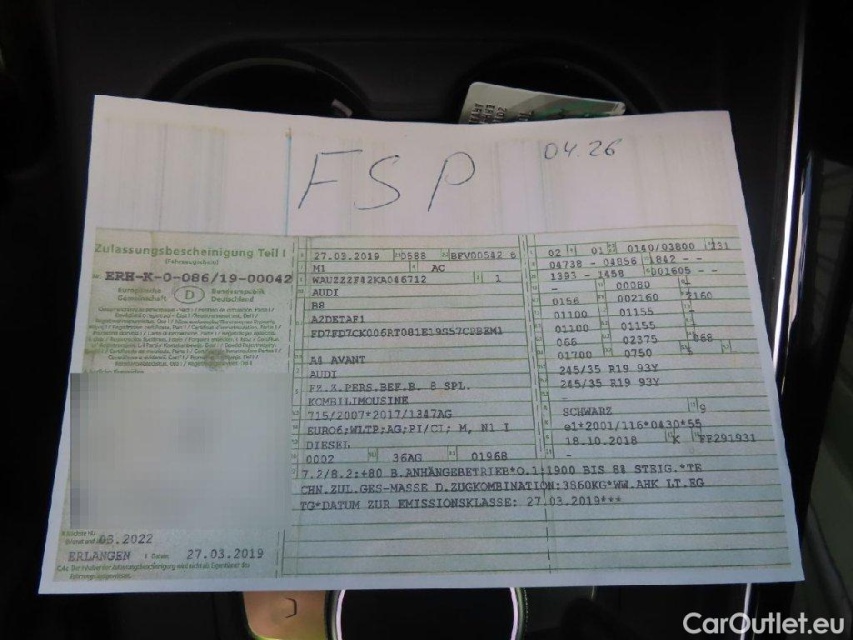 FSP 04.26
Zulassungsbescheinigung Teil I
(Fahrzeugschein)
ERH-K-0-086/19-00042
Europäische Gemeinschaft D Bundesrepublik Deutschland
ERLANGEN Datum 27.03.2019
27.03.2019 0588 BFV00542 6
M1 AC
WAUZZZF42KA046712 1
AUDI
B8
A2DETAF1
FD7FD7CK006RT081E19S57CPBEM1
A4 AVANT
AUDI
FZ.Z.PERS.BEF.B. 8 SPL.
KOMBILIMOUSINE
715/2007*2017/1347AG
EURO6;WLTP;AG;PI/CI; M, N1 I
DIESEL
0002 36AG 01968
02 01 0140/03800 231
04738 - 04856 1842 - -
1393 - 1458 001605 - -
- 00080 -
0156 002160 2160
01100 01155
01100 01155
066 02375 068
01700 0750
245/35 R19 93Y
245/35 R19 93Y
-
SCHWARZ 9
e1*2001/116*0430*55
18.10.2018 K FF291931
-
7.2/8.2:+80 B.ANHÄNGEBETRIEB*O.1:1900 BIS 8% STEIG.*TE
CHN.ZUL.GES-MASSE D.ZUGKOMBINATION:3860KG*WW.AHK LT.EG
TG*DATUM ZUR EMISSIONSKLASSE: 27.03.2019***
CarOutlet.eu